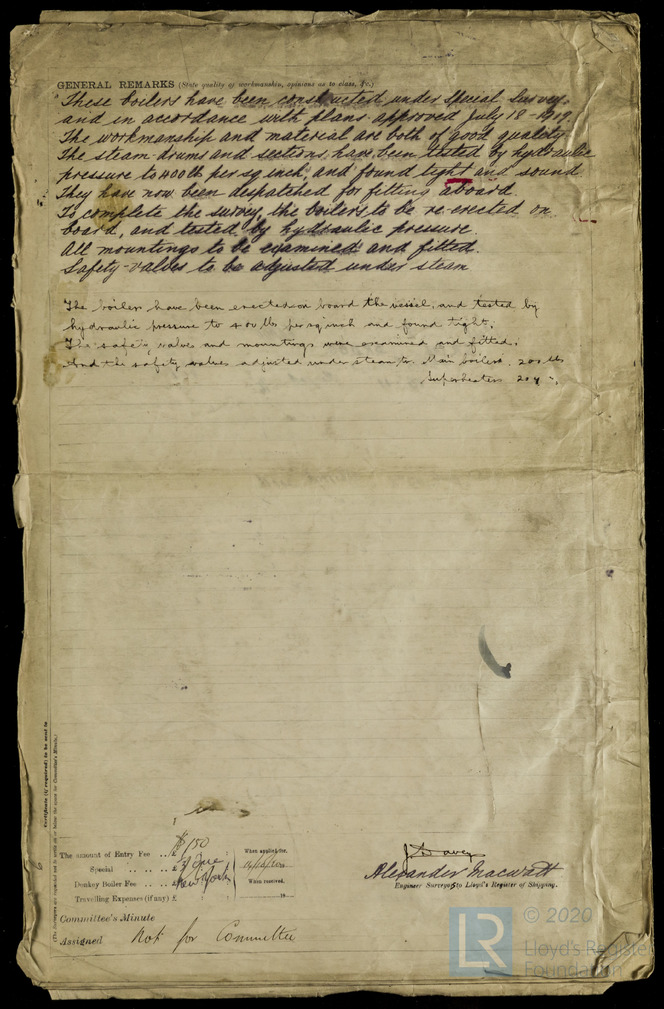 GENERAL REMARKS (State quality of workmanship, opinions as to class, &c.)
These boilers have been constructed under Special Survey.
and in accordance with plans approved July 18-1919.
The workmanship and material are both of good quality.
The steam drums and sections, have been tested by hydraulic
pressure to 400 lb per sq inch, and found tight and sound
They have now been despatched for fitting aboard.
To complete the survey, the boilers to be re-erected on
board, and tested by hydraulic pressure.
All mountings to be examined and fitted.
Safety-valves to be adjusted under steam
The boilers have been erected on board the vessel, and tested by
hydraulic pressure to 400 lbs per sq inch and found tight.
The safety valves and mountings were examined and fitted.
And the safety valves adjusted under steam to. Main boilers. 200 lbs
Superheaters
Certificate (if required) to be sent to
The amount of Entry Fee .. £ $150
Special .. .. £
Donkey Boiler Fee .. .. £ New York
Travelling Expenses (if any) £
When applied for,
When received,
Committee's Minute
Assigned Not for Committee
Alexander Macwatt
Engineer Surveyors to Lloyd's Register of Shipping.
LR
© 2020
Lloyd's Registe
Foundation